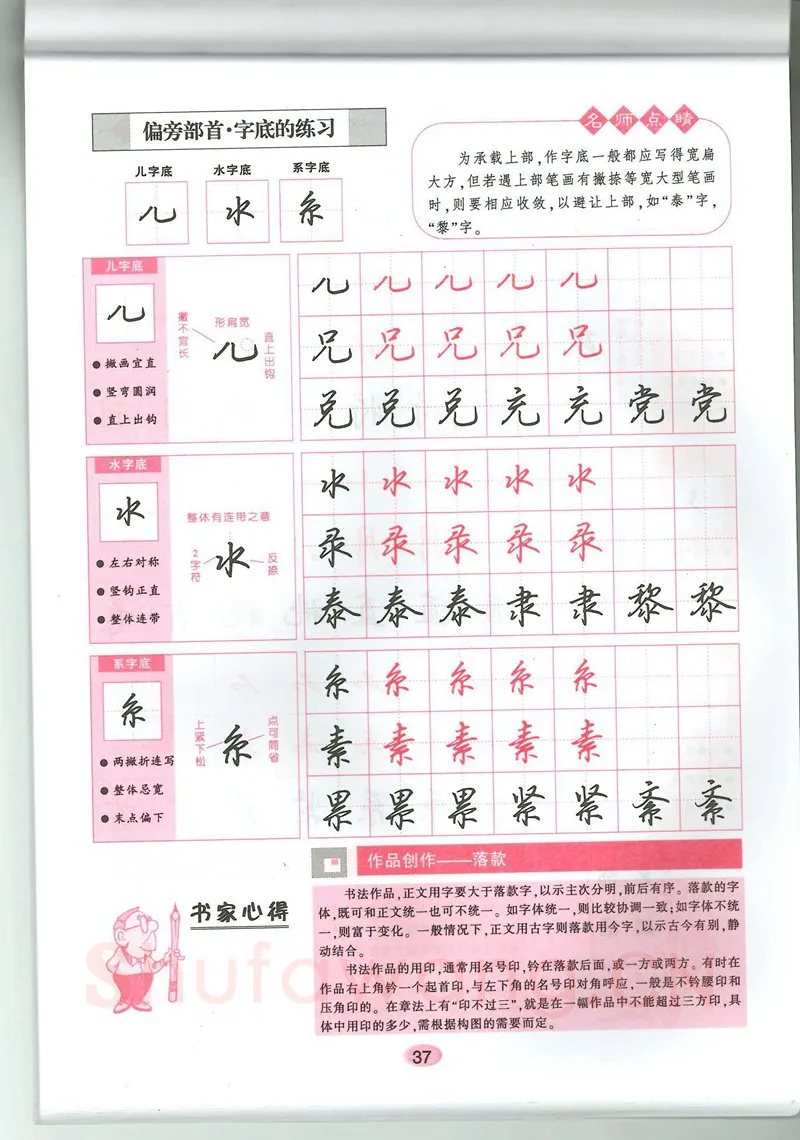 偏旁部首·字底的练习
名师点睛
儿字底 水字底 系字底
儿 水 糸
为承载上部,作字底一般都应写得宽扁
大方,但若遇上部笔画有撇捺等宽大型笔画
时,则要相应收敛,以避让上部,如“泰”字,
“黎”字。
儿字底
儿
撇画宜直
竖弯圆润
直上出钩
撇不宜长
形扁宽
儿
直上出钩
儿 儿 儿 儿 儿
兄 兄 兄 兄 兄
兑 兑 兑 充 充 党 党
水字底
水
左右对称
竖钩正直
整体连带
整体有连带之意
2字符
水
反捺
水 水 水 水 水
录 录 录 录 录
泰 泰 泰 隶 隶 黎 黎
系字底
糸
两撇折连写
整体忌宽
末点偏下
上紧下松
糸
点可简省
糸 糸 糸 糸 糸
素 素 素 素 素
累 累 累 紧 紧 紊 紊
作品创作——落款
书家心得
书法作品,正文用字要大于落款字,以示主次分明,前后有序。落款的字
体,既可和正文统一也可不统一。如字体统一,则比较协调一致;如字体不统
一,则富于变化。一般情况下,正文用古字则落款用今字,以示古今有别,静
动结合。
书法作品的用印,通常用名号印,钤在落款后面,或一方或两方。有时在
作品右上角钤一个起首印,与左下角的名号印对角呼应,一般是不钤腰印和
压角印的。在章法上有“印不过三”,就是在一幅作品中不能超过三方印,具
体中用印的多少,需根据构图的需要而定。
37